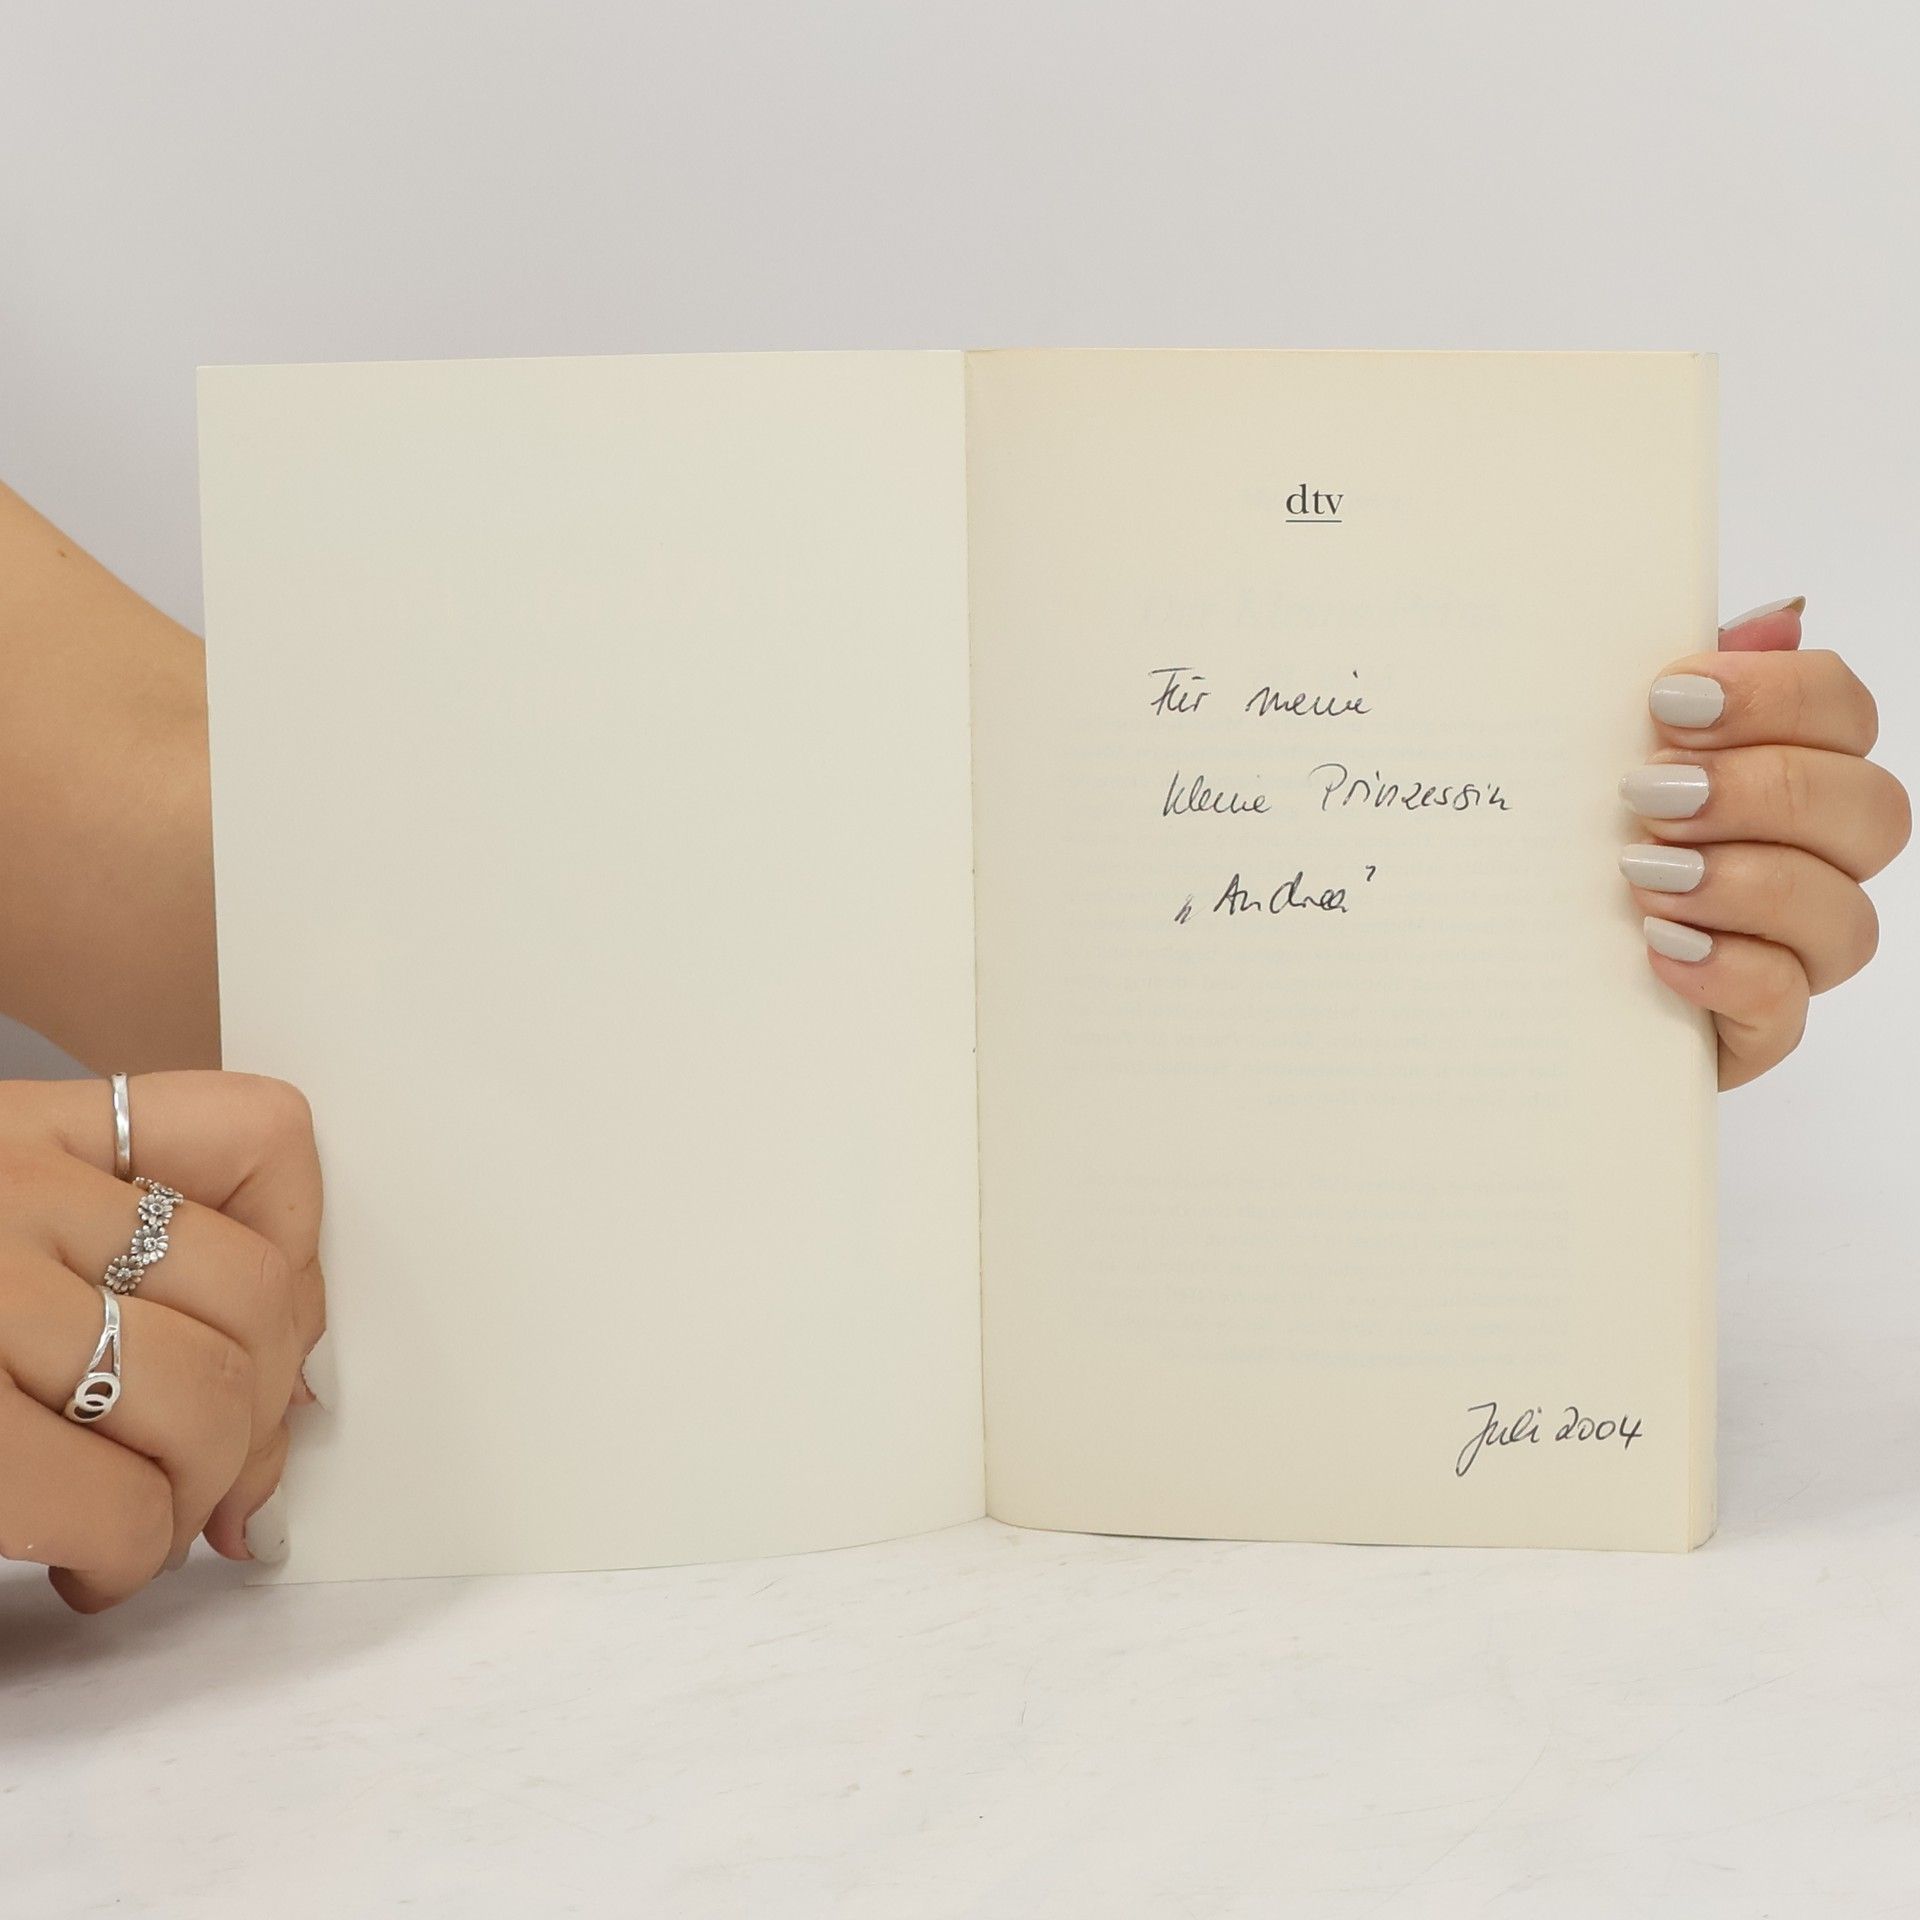 dtv
Für meine
kleine Prinzessin
„Andrea"
Juli 2004